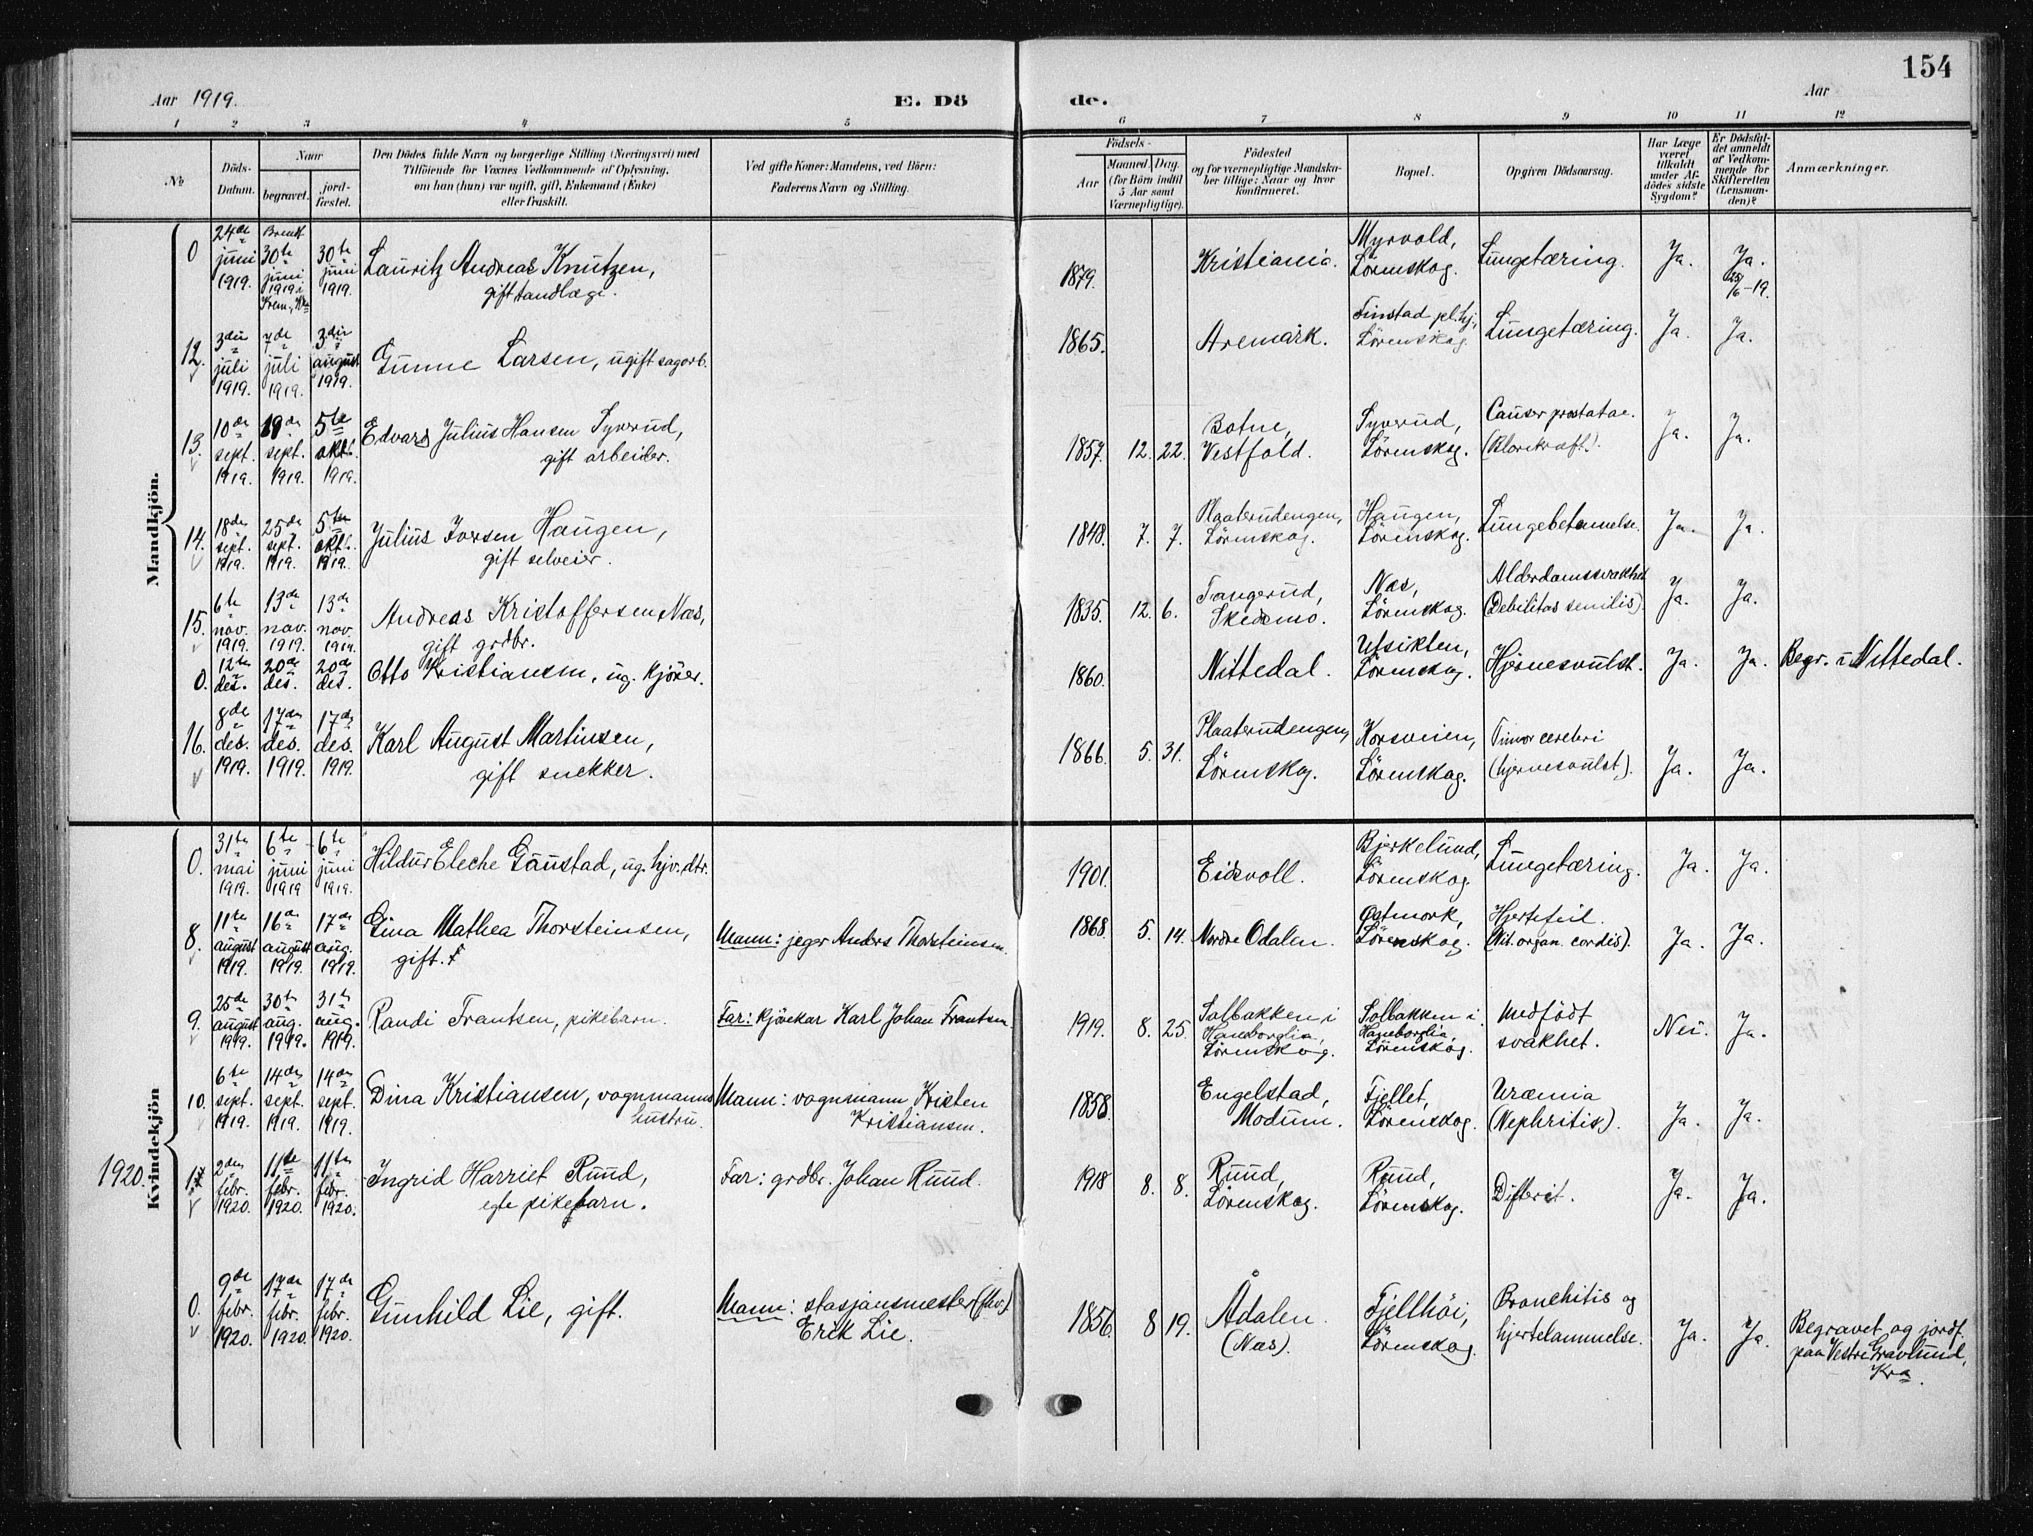 154
Aar 1919.
E. Dö
de.
Aar
1 2 3 4 5 6 7 8 9 10 11 12
№
Döds-
Datum.
Naar
begravet.
jord-
fæstet.
Den Dödes fulde Navn og borgerlige Stilling (Næringsvei) med
Tilföiende for Voxnes Vedkommende af Oplysning,
om han (hun) var ugift, gift, Enkemand (Enke)
eller fraskilt.
Ved gifte Koner: Mandens, ved Börn:
Faderens Navn og Stilling.
Födsels-
Aar
Maaned
Dag.
(for Börn indtil
5 Aar samt
Værnepligtige).
Födested
og for værnepligtige Mandska-
ber tillige: Naar og hvor
konfirmeret.
Bopæl.
Opgiven Dödsaarsag.
Har Læge
været
tilkaldt
under Af-
dödes sidste
Sygdom?
Er Dödsfal-
det anmeldt
af Vedkom-
mende for
Skifteretten
(Lensman-
den)?
Anmærkninger.
Mandkjön.
0 24de juni 1919. Brendt 30te juni 1919 i Krem., Kra 30te juni 1919. Lauritz Andreas Knutzen,
gift tandlæge.
1879. Kristiania. Myrvold, Lörenskog. Lungetæring. Ja. Ja. 28/6-19.
12. 3die juli 1919. 7de juli 1919. 3die august 1919. Gunne Larsen, ugift sagarb.
1865. Aremark. Finstad pl.hj., Lörenskog. Lungetæring. Ja. Ja.
13. 10de sept. 1919. 19de sept. 1919. 5te okt. 1919. Edvard Julius Hansen Syverud,
gift arbeider.
1857. 12. 22. Botne, Vestfold. Syverud, Lörenskog. Cancer prostatae. Ja. Ja.
14. 18de sept. 1919. 25de sept. 1919. 5te okt. 1919. Julius Iversen Haugen,
gift selveier.
1848. 7. 7. Plaaterudengen, Lörenskog. Haugen, Lörenskog. Lungebetennelse. Ja. Ja.
15. 6te nov. 1919. 13de nov. 1919. 13de nov. 1919. Andreas Kristoffersen Næs,
gift grdbr.
1835. 12. 6. Tangerud, Skedsmo. Næs, Lörenskog. Alderdomssvakhet (Debilitas senilis). Ja. Ja.
0. 12te des. 20de des. 20de des. Otto Kristiansen, ug. kjörer.
1860. Nittedal. Utsikten, Lörenskog. Hjernesvulst. Ja. Ja. Begr. i Nittedal.
16. 8de des. 1919. 17de des. 1919. 17de des. 1919. Karl August Martinsen,
gift snekker.
1866. 5. 31. Plaaterudengen, Lörenskog. Korsveien, Lörenskog. Tumor cerebri (hjernesvulst). Ja. Ja.
Kvindekjön
0. 31te mai 1919. 6te juni 1919 6te juni 1919. Hildur Eleche Gaustad, ug. hjv. dtr.
1901. Eidsvoll. Bjerkelund, Lörenskog. Lungetæring. Ja. Ja.
8. 11te august 1919. 16de august 1919. 17de aug. 1919. Gina Mathea Thorsteinsen,
gift.
Mann: jeger Anders Thorsteinsen.
1868 5. 14. Nordre Odalen. Østmork, Lörenskog. Hjertefeil. (Vit. organ. cordis). Ja. Ja.
9. 25de august 1919. 30te aug. 1919. 31te aug. 1919. Randi Frantsen, pikebarn.
Far: kjörekar Karl Johan Frantsen.
1919. 8. 25. Solbakken i Haneborglia, Lörenskog. Solbakken i Haneborglia, Lörenskog. Medfödt svakhet. Nei. Ja.
10. 6te sept. 1919. 14de sept. 1919. 14de sept. 1919. Dina Kristiansen, vognmanns
hustru.
Mann: vognmann Kristen
Kristiansen.
1858. Engelstad, Modum. Fjellet, Lörenskog. Uræmia (Nephritis). Ja. Ja.
1920. 1 2den febr. 1920. 11te febr. 1920. 11te febr. 1920. Ingrid Harriet Ruud,
egte pikebarn.
Far: grdbr. Johan Ruud.
1918 8. 8. Ruud, Lörenskog. Ruud, Lörenskog. Difterit. Ja. Ja.
0. 9de febr. 1920. 17de febr. 1920. 17de febr. 1920. Gunhild Lie, gift.
Mann: stasjonsmester (fhv.)
Erik Lie.
1856. 8 19. Ådalen (Næs). Fjellhöi, Lörenskog. Bronchitis og hjertelammelse. Ja. Ja. Begravet og jordf. paa Vestre Gravlund, Kra.